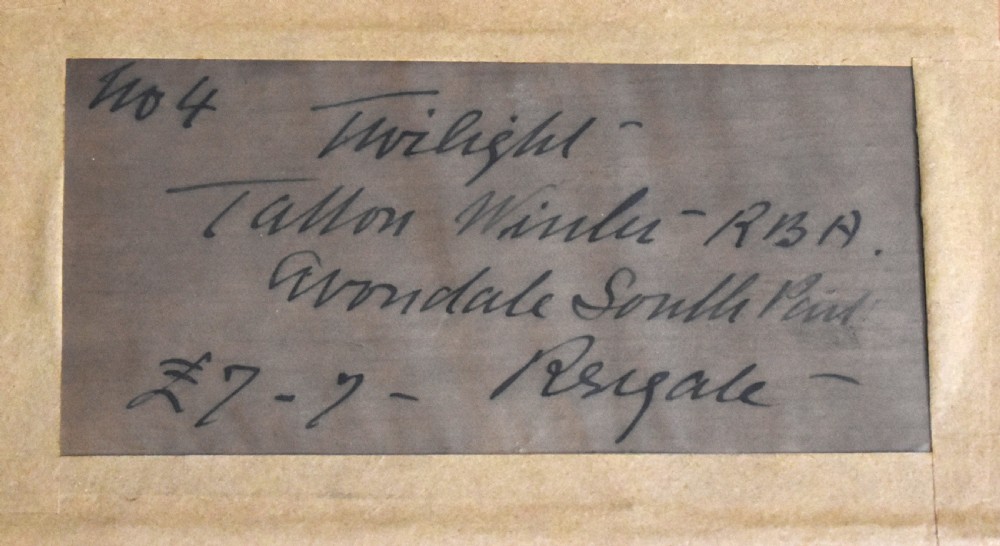 No 4
Twilight -
Tatton Winter - RBA.
Avondale South Park
£7-7- Reigate -